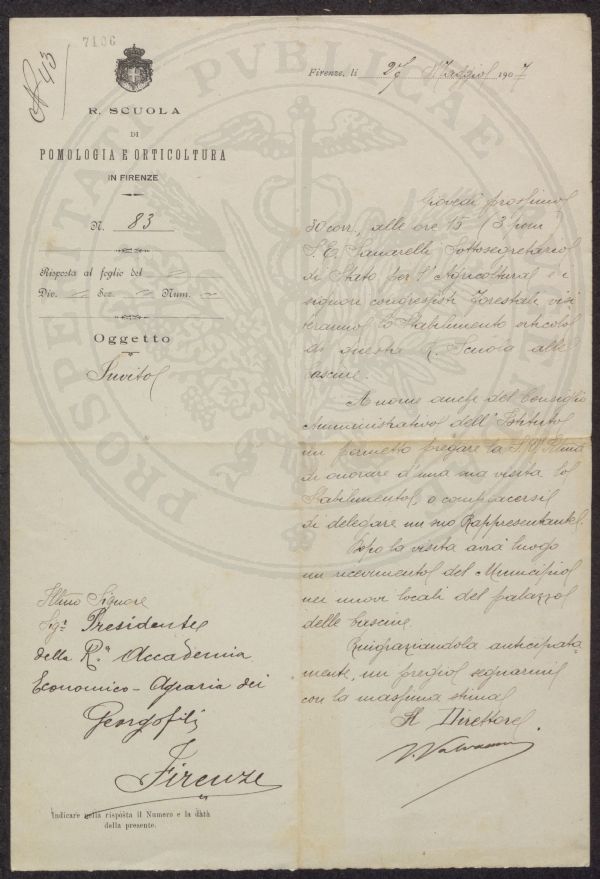 N 43
7106
R. SCUOLA
DI
POMOLOGIA E ORTICOLTURA
IN FIRENZE
N. 83
Risposta al foglio del
Div. Sez. Num.
Oggetto
Invito
Firenze, li 27 Maggio 1907
Giovedì prossimo
30 corr., alle ore 15 (3 pom)
S. E. Sanarelli Sottosegretario
di Stato per l'Agricoltura e i
signori congressisti forestali visi
teranno lo Stabilimento orticolo
di questa R. Scuola alle
Cascine.
A nome anche del Consiglio
Amministrativo dell'Istituto
mi permetto pregare la S. V. Illma
di onorare d'una sua visita lo
Stabilimento o compiacersi
di delegare un suo Rappresentante.
Dopo la visita avrà luogo
un ricevimento del Municipio
nei nuovi locali del palazzo
delle Cascine.
Ringraziandola anticipata-
mente, mi pregio segnarmi
con la massima stima
Il Direttore
V. Valvassori
Illmo Signore
Sigr. Presidente
della R.a Accademia
Economico-Agraria dei
Georgofili
Firenze
Indicare nella risposta il Numero e la data
della presente.
PROSPERITATI PUBLICAE